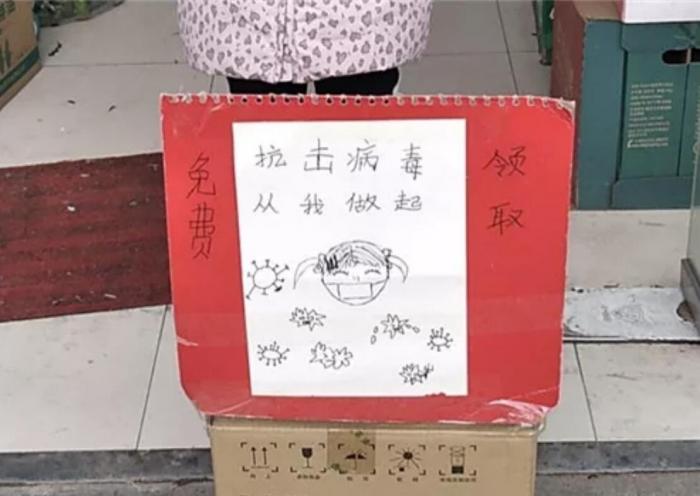 免费
抗击病毒
从我做起
领取